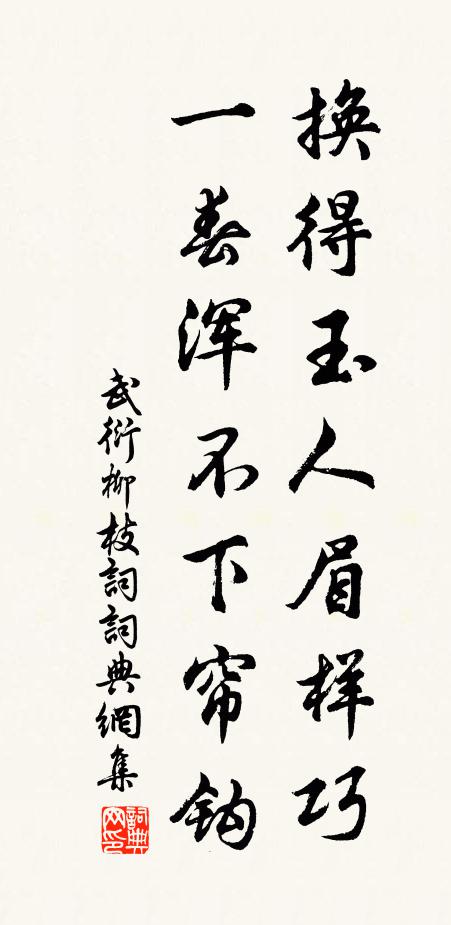 换得玉人眉样巧
一春浑不下帘钩
武衍柳枝詞詞典網集
詞典
网印